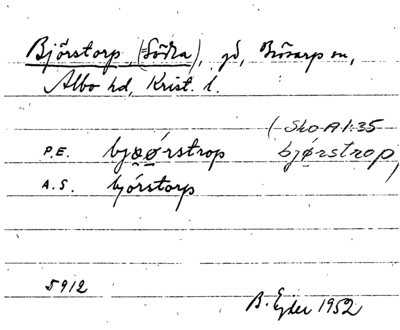 Björstorp, (Södra), gd, Brösarp sn,
Albo hd, Krist. l.
(Sko A 1:35
P.E. bjøǿrstrop bjǿrstrop)
A.S. bjórstorp
5912
B. Ejder 1952